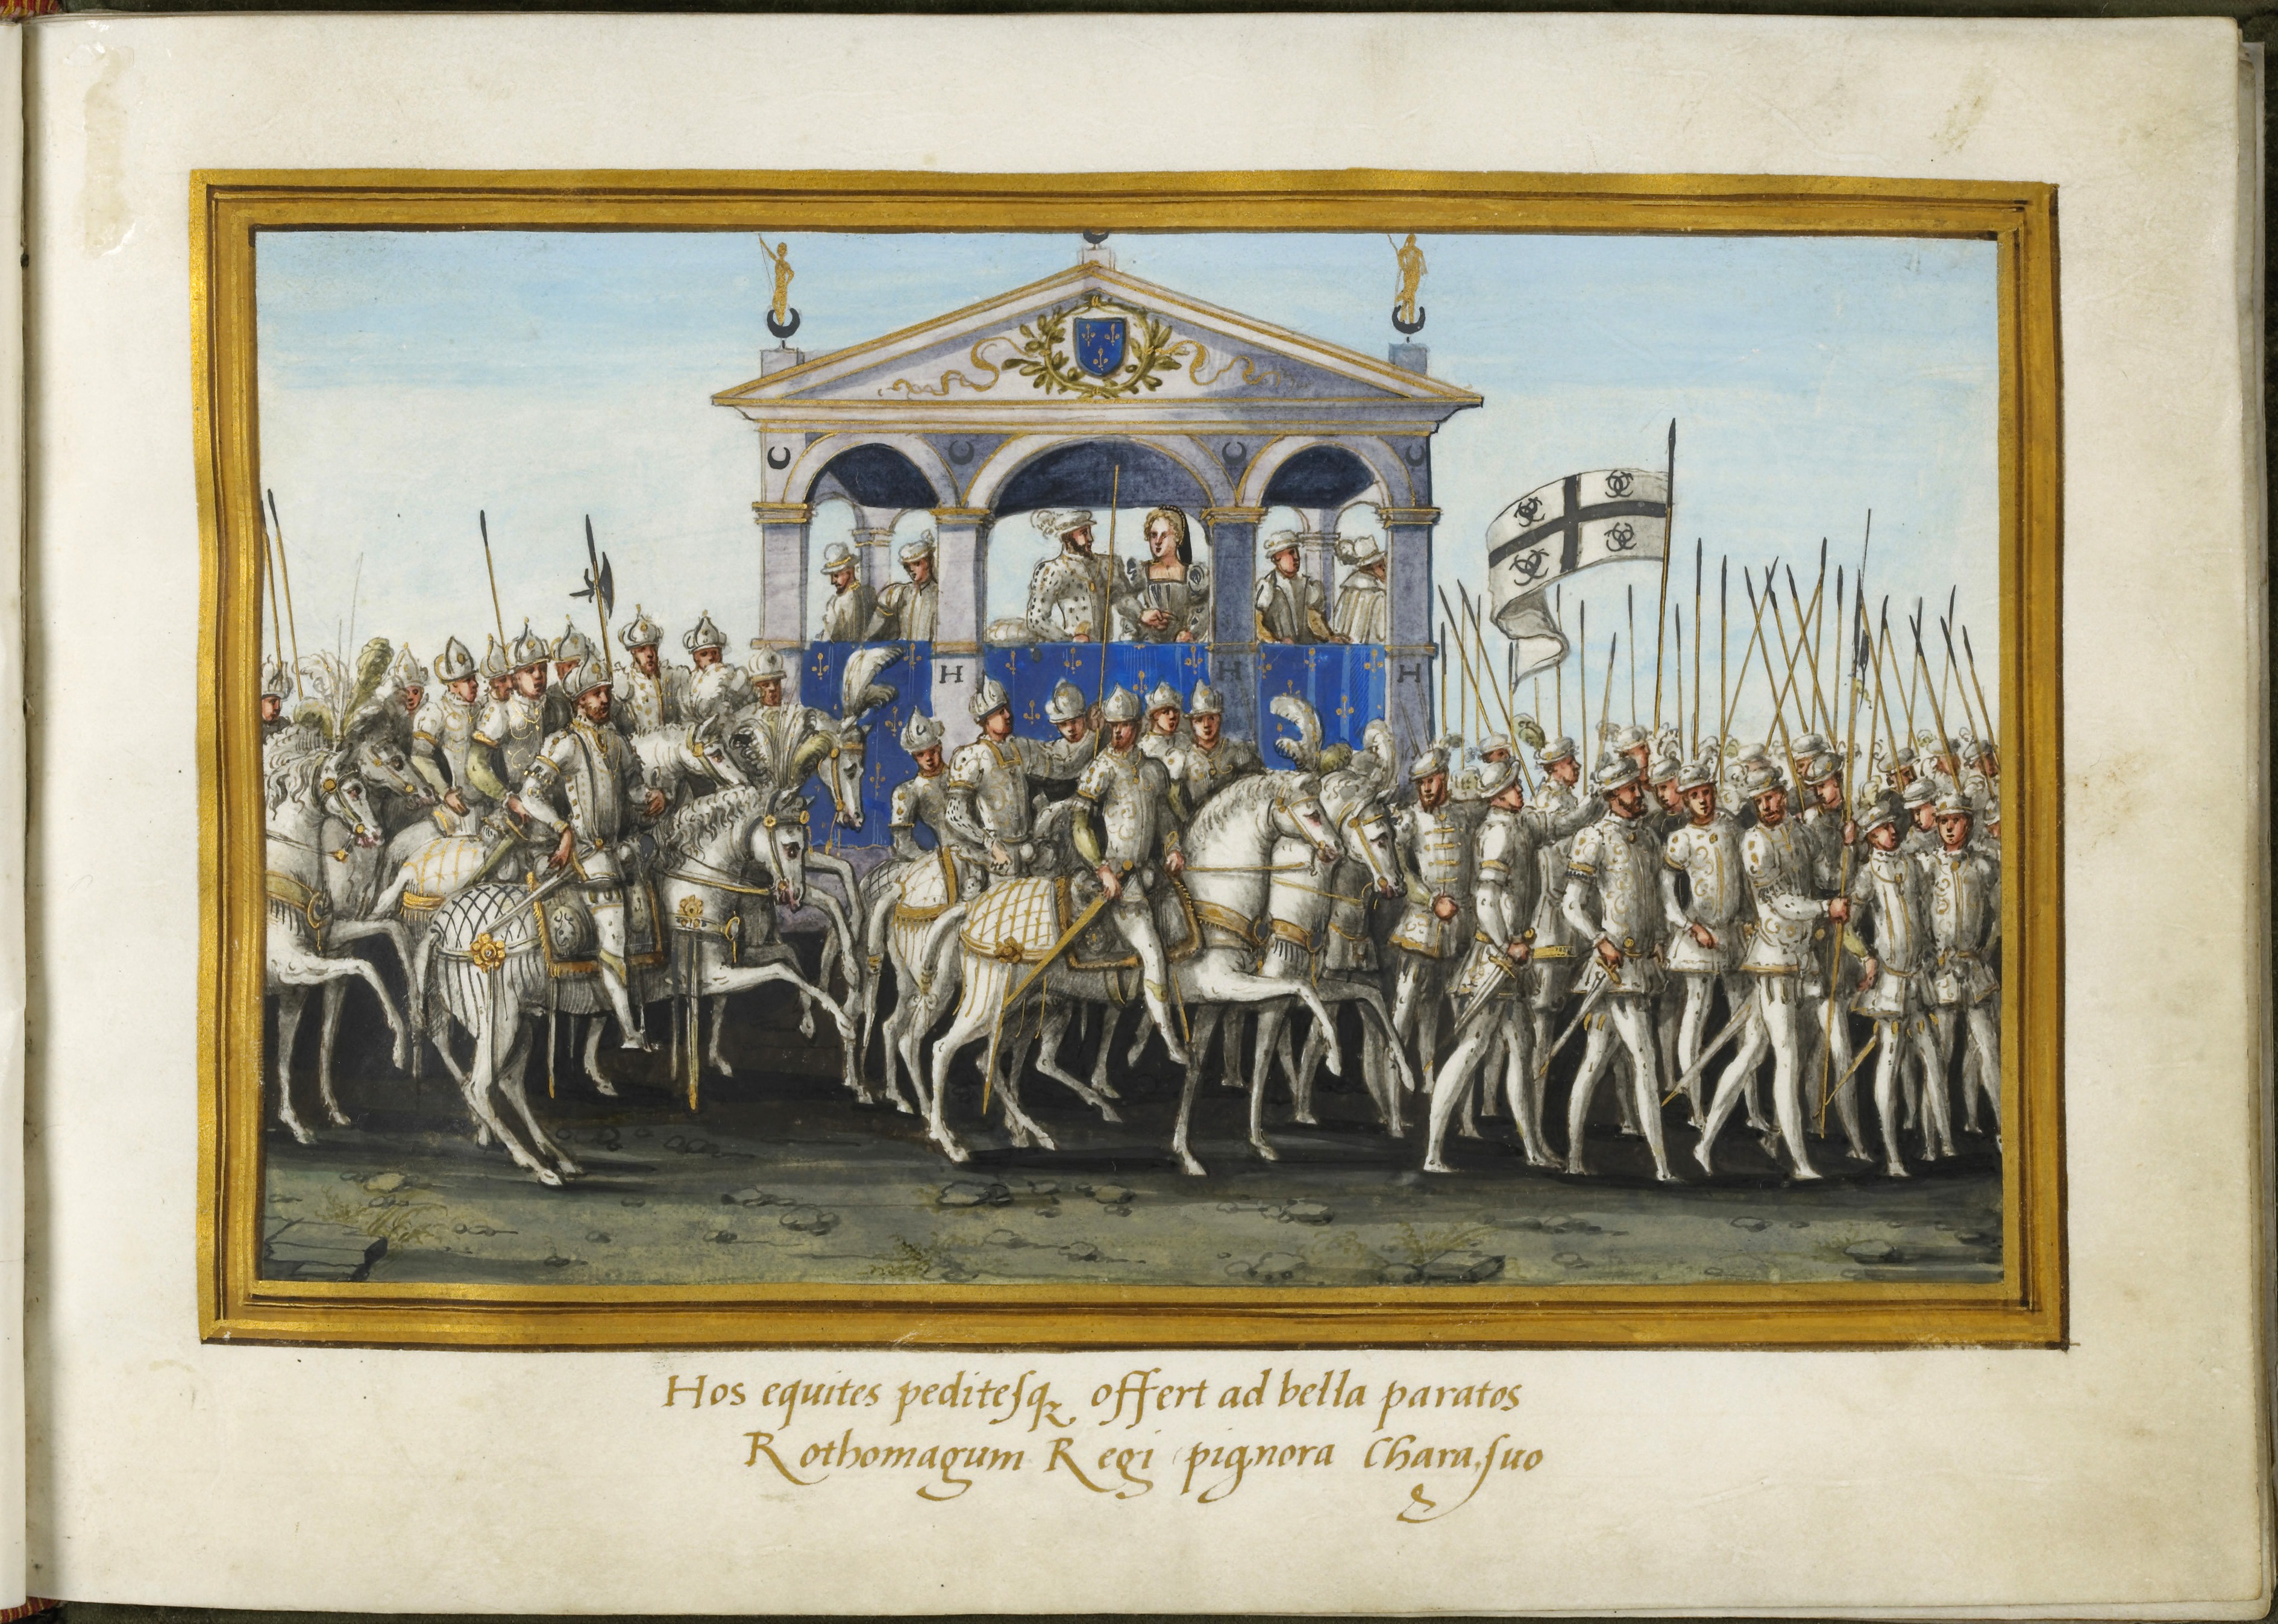 H
H
H
Hos equites peditesqꝫ offert ad bella paratos
Rothomagum Regi pignora Chara, suo